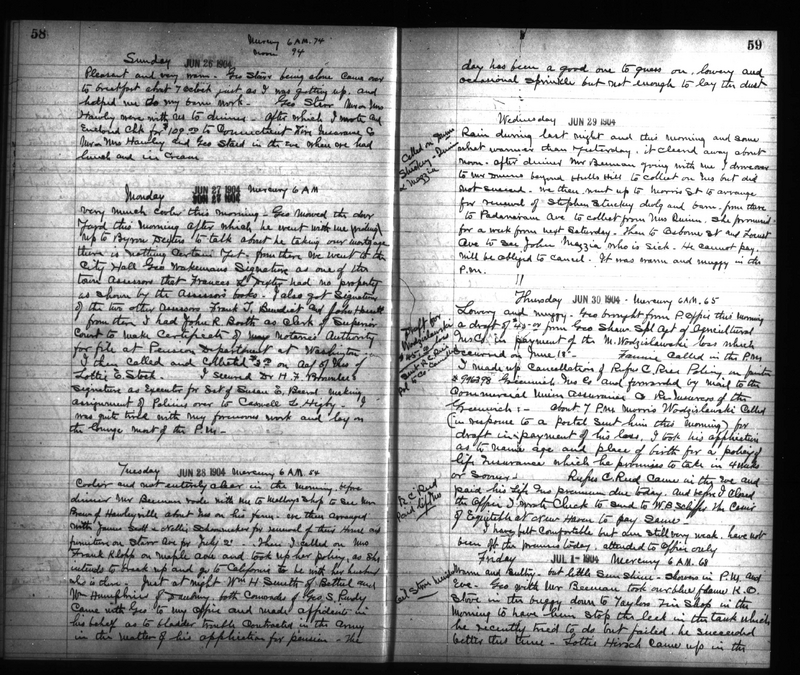 58
Mercury 6 AM. 74
Noon 94
Sunday JUN 26 1904
Pleasant and very warm. Geo Starr being alone came over
to breakfast about 7 oclock just as I was getting up, and
helped me do my barn work. Geo Starr Mr & Mrs
Hawley were with us to dinner. after which I wrote and
Enclosed Chk for to Connecticut Fire Insurance Co
Mr & Mrs Hawley and Geo Starr in the eve when we had
lunch and ice cream
Monday JUN 27 1904 Mercury 6 AM
JUN 27 1904
Very much cooler this morning. Geo mowed the door
Yard this morning after which he went with me
up to Byron to talk about he taking our mortgage
there is nothing certain yet. from there we went to the
City Hall Geo Wakemans Signature as one of the
town assessors that Frances had no property
as shown by the assessors books. I also got Signatures
of the two other assessors Frank T. Benedict and John
from there I had John R. Booth as Clerk of Superior
Court to make Certificate of my Notaries Authority
for file at Pension Department at Washington
I then called and Collected on Acc of Ins of
Lottie E. I secured Dr H. F.
Signature as Executor for Est of Susan E. Beard making
assignment of Policies over to L. Higby. I
was quite tired with my forenoons work and lay on
the lounge most of the P.M.
Tuesday JUN 28 1904 Mercury 6 AM. 54
Cooler and not entirely clear in the morning. before
dinner Mr Beeman rode with me to Shop to see Mr
of Hawleyville about Ins on his farm. we then arranged
with James Scott & Nellie for removal of their House and
furniture on Starr Ave for July 2. Then I called on Mrs
Frank Klopp on Maple Ave and took up her policy, as she
intends to break up and go to California to be with her husband
who is there. Just at night Wm H. Smith of Bethel and
Wm Humphries of Danbury both Comrads of Geo S. Purdy
Came with Geo to my office and made affidavits in
his behalf as to bladder trouble contracted in the Army
in the matter of his application for pension. The
59
day has been a good one to guess on, lowery and
occasional sprinkles but not enough to lay the dust
Wednesday JUN 29 1904
Called on
Stuckey - Quinn
& Mazzia
Rain during last night and this morning and some
what warmer than yesterday. it cleared away about
noon. after dinner Mr Beeman going with me I drove over
to Mr beyond Hulls Hill to collect on Ins but did
not succeed. We then went up to Morris St to arrange
for renewal of Stephen Stuckey dwlg and barn. from there
to Padanaram Ave to collect from Mrs Quinn. She promised
for a week from next Saturday. Then to Osborne St and Locust
Ave to see John Mazzia who is sick. He cannot pay.
will be obliged to cancel. It was warm and muggy in the
P.M.
Thursday JUN 30 1904 - Mercury 6 AM. 65
Draft for
Wodzislawski
loss
Lowery and muggy. Geo brought from P. Office this morning
a draft of from Geo Shaw Spl Agt of Agricultural
Ins Co. in payment of the M. Wodzislawski loss which
occurred on June 13. Fannie called in the P.M.
I made up Cancellation of Rufus C. Reed Policy
# 946398 Greenwich Ins Co and forwarded by mail to the
Commercial Union Assurance Co Reinsurers of the
Greenwich: - About 7 P.M. Morris Wodzislawski Called
(in response to a postal sent him this morning) for
draft in payment of his loss. I took his application
as to name age and place of birth for a policy of
life Insurance which he promises to take in 4 weeks
or sooner.
R C Reed
Paid Life Ins
Rufus C. Reed Came in the Eve and
paid his Life Ins premium due today. and before I closed
the office I wrote Check to send to W. B. the Cashr
of Equitable at New Haven to pay same.
I have felt comfortable but am still very weak. have not
been off the premises today, attended to office only
Friday JUL 1 - 1904 Mercury 6 AM. 68
Warm and sultry. but little Sunshine. showers in P.M. and
Eve. Geo with Mr Beeman took our blue flame K.O.
Stove in the buggy down to Taylors Tin Shop in the
morning to have him stop the leak in the tank which
he recently tried to do but failed. he succeeded
better this time. Lottie Hirsch came up in the